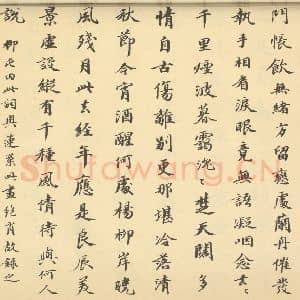 門帳飲無緒方留戀處蘭舟催發
執手相看淚眼竟無語凝咽念去〻
千里煙波暮靄沈〻楚天闊 多
情自古傷離別更那堪冷落清
秋節今宵酒醒何處楊柳岸曉
風殘月此去經年應是良辰美
景虛設縱有千種風情待與何人
說 柳七此詞與此畫絕肖故錄之
Shufawang.CN